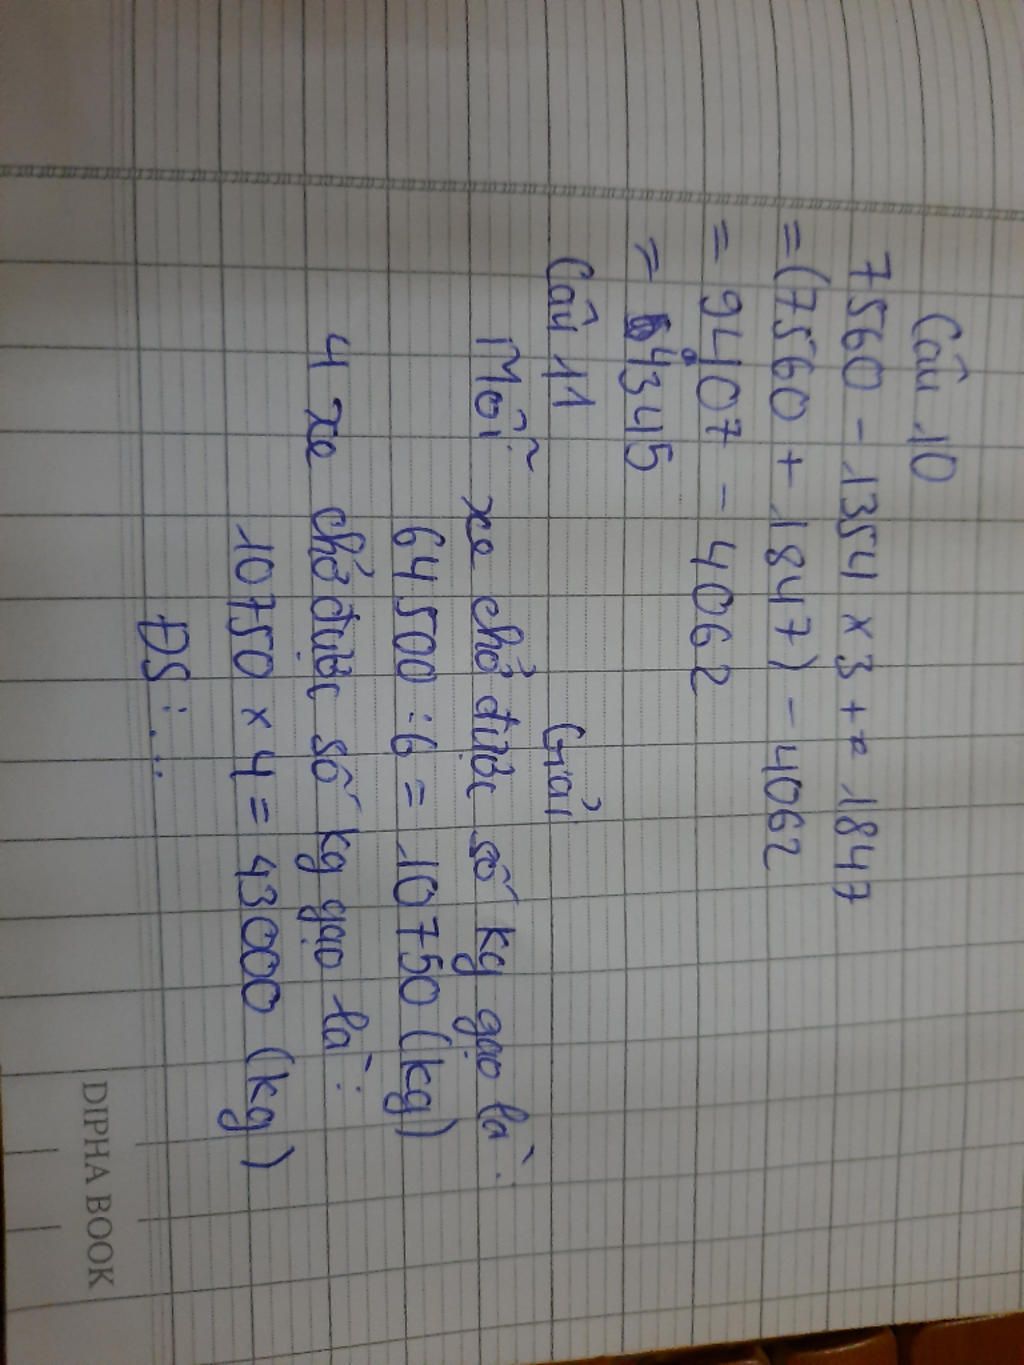 Câu 10
7560 - 1354 x 3 + 1847
= (7560 + 1847) - 4062
= 9407 - 4062
= 4345
Câu 11 Giải
Mỗi xe chở được số kg gạo là:
64500 : 6 = 10750 (kg)
4 xe chở được số kg gạo là:
10750 x 4 = 43000 (kg)
ĐS: ...
DIPHA BOOK